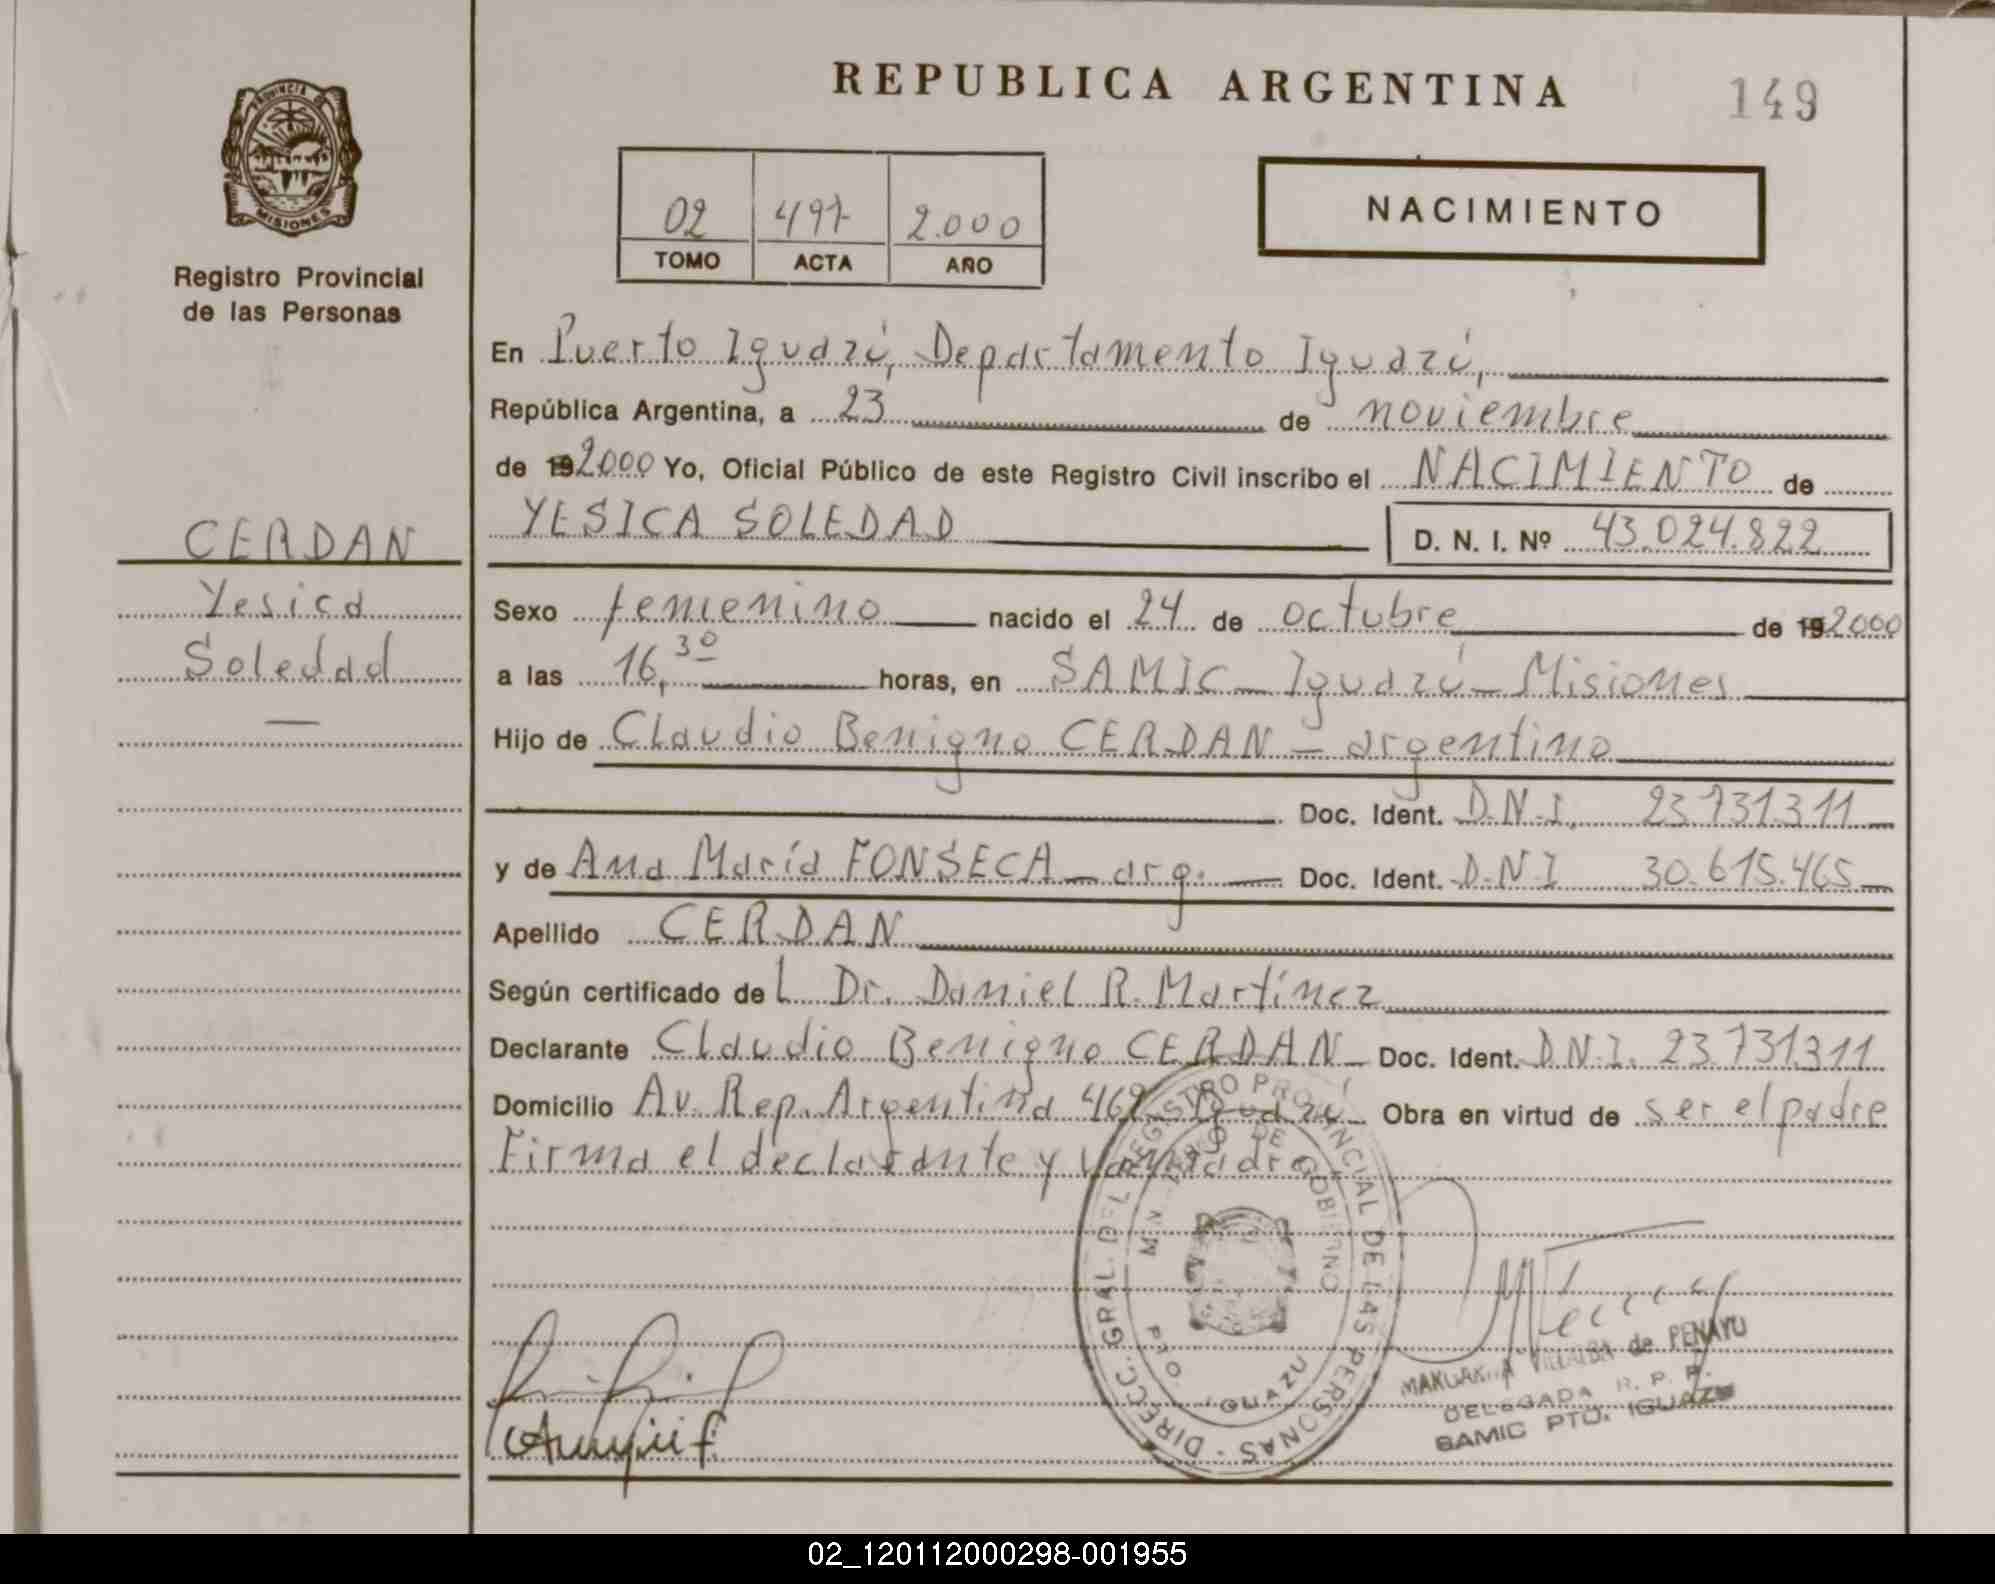 REPUBLICA ARGENTINA
149
PROVINCIA DE
MISIONES
Registro Provincial
de las Personas
02 497 2.000
TOMO ACTA AÑO
NACIMIENTO
En Puerto Iguazú, Departamento Iguazú,
República Argentina, a 23 de noviembre
de 19 2000 Yo, Oficial Público de este Registro Civil inscribo el NACIMIENTO de
YESICA SOLEDAD D. N. I. Nº 43.024.822
CERDAN
Yesica
Soledad
Sexo femenino nacido el 24 de octubre de 19 2000
a las 16,30 horas, en SAMIC - Iguazú - Misiones
Hijo de Claudio Benigno CERDAN - argentino
Doc. Ident. D.N.I. 23.731.311
y de Ana María FONSECA - arg. Doc. Ident. D.N.I 30.615.465
Apellido CERDAN
Según certificado del Dr. Daniel R. Martínez
Declarante Claudio Benigno CERDAN - Doc. Ident. D.N.I. 23.731.311
Domicilio Av. Rep. Argentina 469 Iguazú Obra en virtud de ser el padre
Firma el declarante y la madre
DIRECC. GRAL. DEL REGISTRO PROVINCIAL DE LAS PERSONAS
DE GOBIERNO
PTO. IGUAZU
VILLALBA de PENAYO
DELEGADA R. P. P.
SAMIC PTO. IGUAZU
02_120112000298-001955